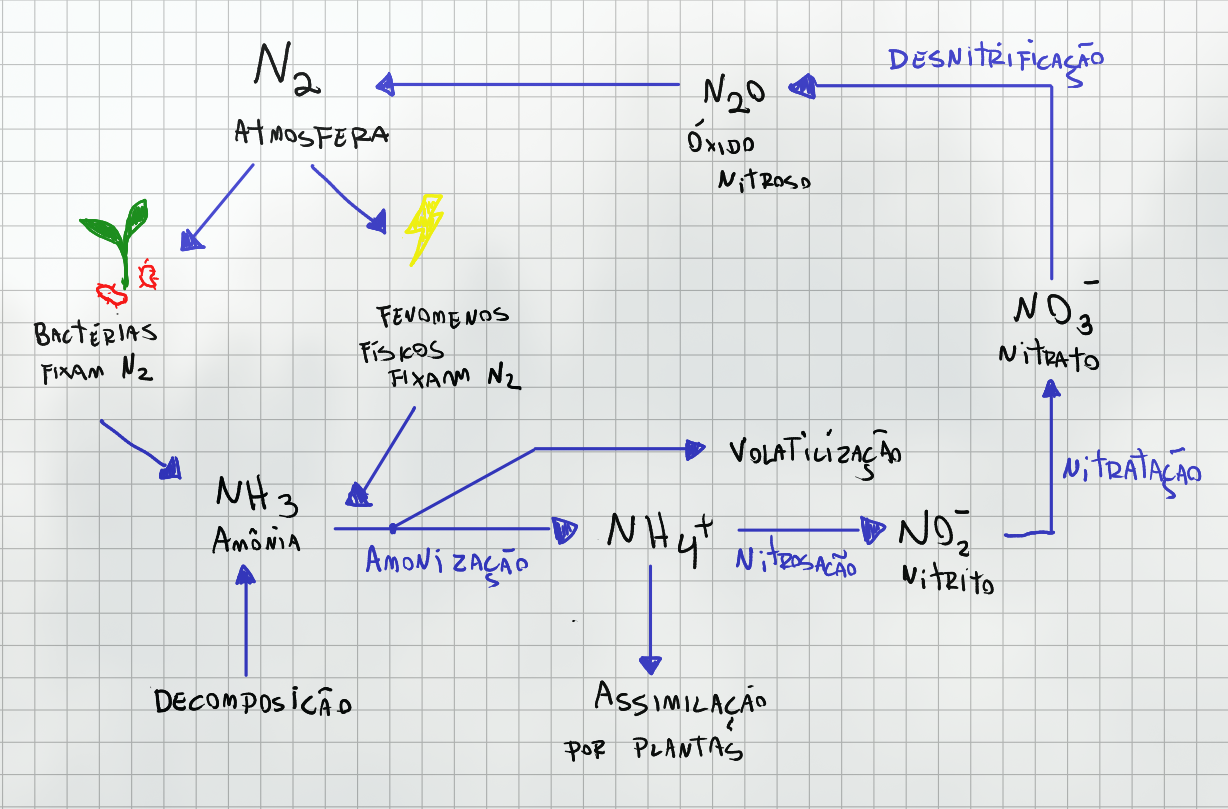 DESNITRIFICAÇÃO
N2
ATMOSFERA
N2O
ÓXIDO
NITROSO
BACTÉRIAS
FIXAM N2
FENOMENOS
FÍSICOS
FIXAM N2
NO3-
NITRATO
VOLATILIZAÇÃO
NITRATAÇÃO
NH3
AMÔNIA
AMONIZAÇÃO
NH4+
NITROSAÇÃO
NO2-
NITRITO
DECOMPOSICÃO
ASSIMILAÇÃO
POR PLANTAS